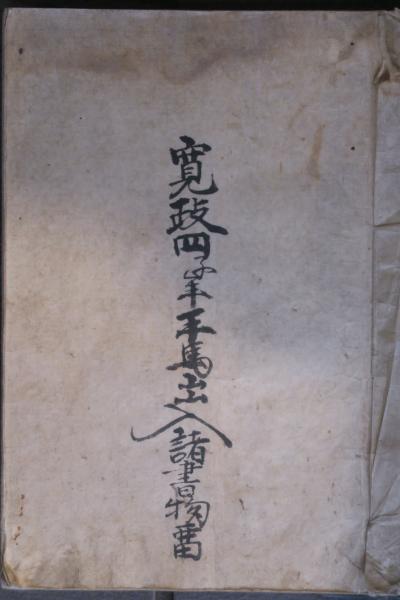 寛政四子年牛馬出入諸書物留